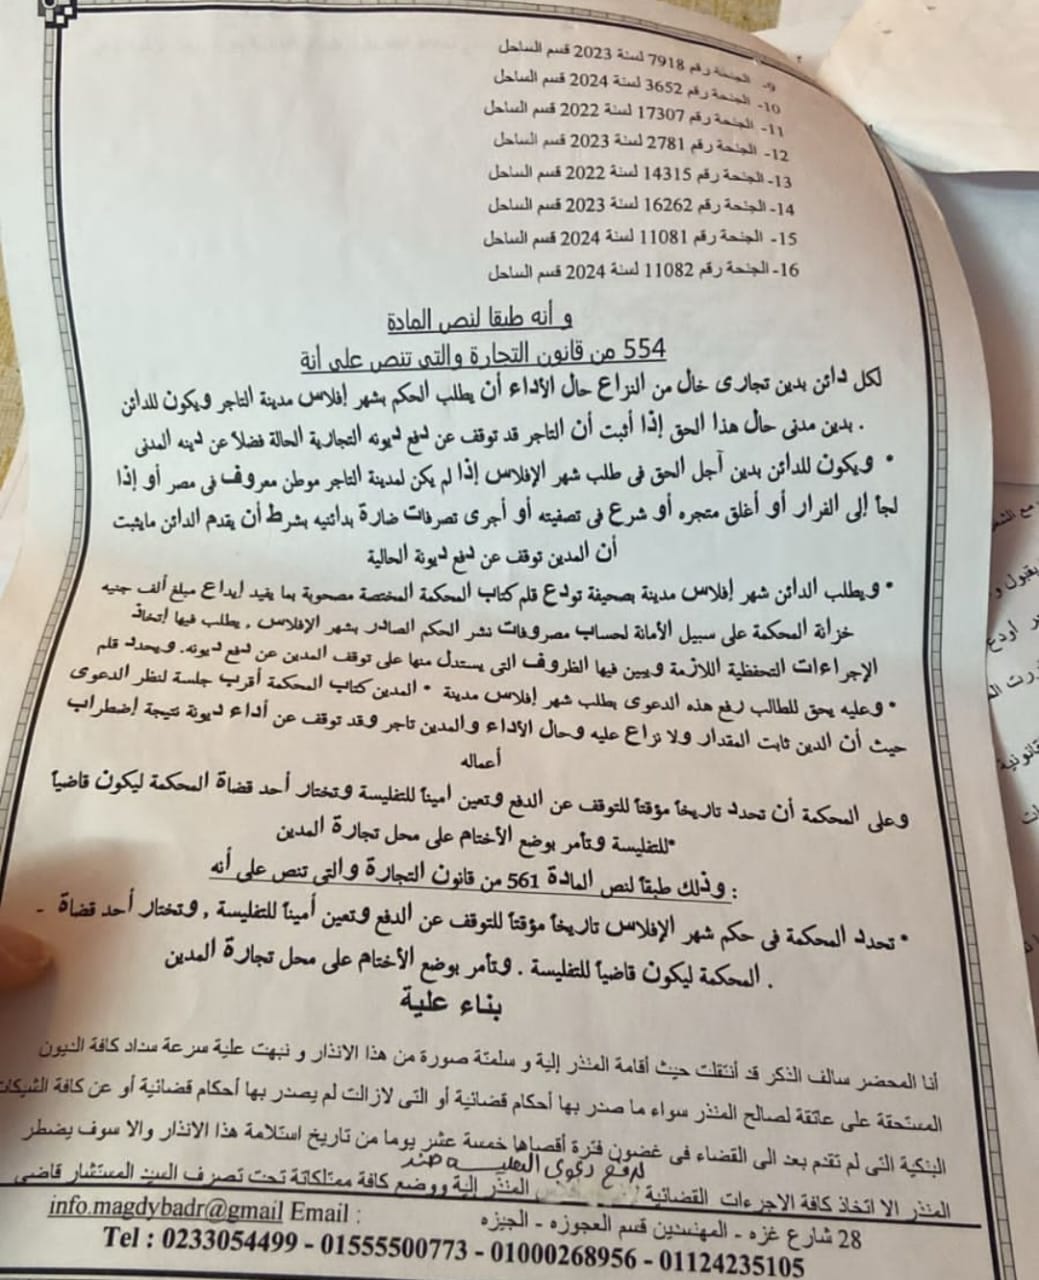 9- الجنحة رقم 7918 لسنة 2023 قسم الساحل
10- الجنحة رقم 3652 لسنة 2024 قسم الساحل
11- الجنحة رقم 17307 لسنة 2022 قسم الساحل
12- الجنحة رقم 2781 لسنة 2023 قسم الساحل
13- الجنحة رقم 14315 لسنة 2022 قسم الساحل
14- الجنحة رقم 16262 لسنة 2023 قسم الساحل
15- الجنحة رقم 11081 لسنة 2024 قسم الساحل
16- الجنحة رقم 11082 لسنة 2024 قسم الساحل
و أنه طبقا لنص المادة
554 من قانون التجارة والتي تنص على أنة
لكل دائن بدين تجارى خال من النزاع حال الأداء أن يطلب الحكم بشهر إفلاس مدينة التاجر ويكون للدائن
. بدين مدنى حال هذا الحق إذا أثبت أن التاجر قد توقف عن دفع ديونه التجارية الحالة فضلاً عن دينه المدنى
• ويكون للدائن بدين آجل الحق فى طلب شهر الإفلاس إذا لم يكن لمدينة التاجر موطن معروف فى مصر أو إذا
لجأ إلى الفرار أو أغلق متجره أو شرع فى تصفيته أو أجرى تصرفات ضارة بدائنيه بشرط أن يقدم الدائن مايثبت
أن المدين توقف عن دفع ديونة الحالية
• ويطلب الدائن شهر إفلاس مدينة بصحيفة تودع قلم كتاب المحكمة المختصة مصحوبة بما يفيد إيداع مبلغ ألف جنيه
خزانة المحكمة على سبيل الأمانة لحساب مصروفات نشر الحكم الصادر بشهر الإفلاس , يطلب فيها إتخاذ
الإجراءات التحفظية اللازمة ويبين فيها الظروف التى يستدل منها على توقف المدين عن دفع ديونه. ويحدد قلم
• وعليه يحق للطالب رفع هذه الدعوى بطلب شهر إفلاس مدينة • المدين كتاب المحكمة أقرب جلسة لنظر الدعوى
حيث أن الدين ثابت المقدار ولا نزاع عليه وحال الأداء والمدين تاجر وقد توقف عن أداء ديونة نتيجة إضطراب
أعماله
وعلى المحكمة أن تحدد تاريخاً مؤقتاً للتوقف عن الدفع وتعين أميناً للتفليسة وتختار أحد قضاة المحكمة ليكون قاضياً
"للتفليسة وتأمر بوضع الأختام على محل تجارة المدين
: وذلك طبقاً لنص المادة 561 من قانون التجارة والتى تنص على أنه
• تحدد المحكمة فى حكم شهر الإفلاس تاريخاً مؤقتاً للتوقف عن الدفع وتعين أميناً للتفليسة , وتختار أحد قضاة -
. المحكمة ليكون قاضياً للتفليسة . وتأمر بوضع الأختام على محل تجارة المدين
بناء علية
أنا المحضر سالف الذكر قد أنتقلت حيث أقامة المنذر إلية و سلمتة صورة من هذا الانذار و نبهت علية سرعة سداد كافة الديون
المستحقة على عاتقة لصالح المنذر سواء ما صدر بها أحكام قضائية أو التى لازالت لم يصدر بها أحكام قضائية أو عن كافة الشيكات
البنكية التى لم تقدم بعد الى القضاء فى غضون فترة أقصاها خمسة عشر يوما من تاريخ استلامة هذا الانذار والا سوف يضطر
لرفع دعوى التفليسة ضد
المنذر الا اتخاذ كافة الاجرءات القضائية المنذر إلية ووضع كافة ممتلكاتة تحت تصرف السيد المستشار قاضى
28 شارع غزه - المهندسين قسم العجوزه - الجيزه
info.magdybadr@gmail Email :
Tel : 0233054499 - 01555500773 - 01000268956 - 01124235105
مع الشعر
بقبول و
أودع
قانونية